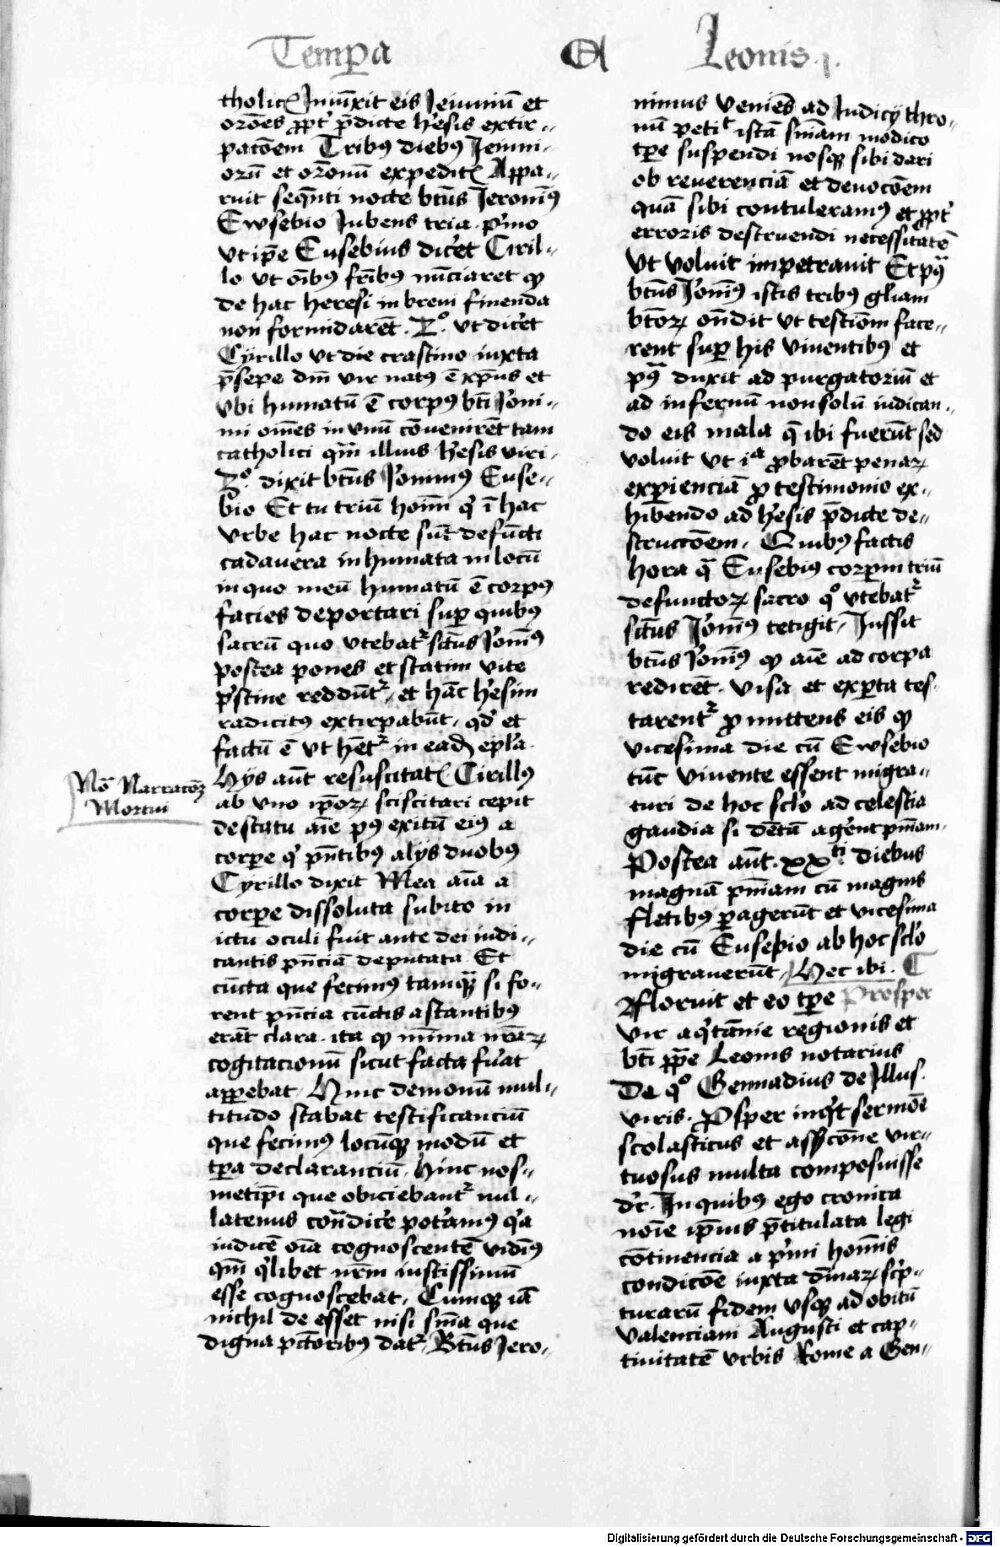 Temp̲a Et Leonis .j.
tholicꝭ Iniūxit eis Ieiuniū et
orōes ꝓpt̾ p̄dicte h̾esis extir-
patōem Tribꝰ diebꝰ Ieiuni-
orū et orōnū expeditꝭ Appa-
ruit seqn̄ti nocte bt̄us Ieronimꝰ
Ewsebio Iubens tria. p̾mo
Vt ip̄e Eusebius dic̾et Ciril-
lo vt oībꝰ fr̄ibꝰ nūciaret ꝙ
de hac heresi in brevi finenda
non formidarēt. 2º. vt dic̾et
Cÿrillo vt die crastino iuxta
p̄sepe dm̄ vir natꝰ ē xp̄us et
vbi humatū ē corpꝰ bt̄i Ioni-
mi om̄es in vnū cōvenirēt tam
catholici qm̄ illius h̾esis viri-
3º dixit bt̄us Ionimꝰ Euse-
bio Et tu triū hoīm q̾ ī hac
vrbe hac nocte sūt defūcti
cadavera inhumata in locū
in quo meū humatū ē corpꝰ
facies deportari sup̲ quibꝰ
sacrū quo vtebat᷑ sctūs Ionīꝰ
postea pones et statim vite
p̾stine reddūt᷑, et hāc h̾esim
radicitꝰ extirpabūt, qd̾ et
factū ē vt hēt᷑ in eadē ep̄la.
Hijs aūt resuscitatꝭ Cirillꝰ
ab vno ip̄oꝝ sciscitari cepit
de statu aīe pꝰ exitū eiꝰ a
corpe q̾ pn̄tibꝰ alijs duobꝰ
Cÿrillo dixit Mea aīa a
corpe dissoluta subito in
ictu oculi fuit ante dei iudi-
cantis pn̄ciā deputata. Et
cūcta que fecimꝰ tamqꝫ si fo-
rent pn̄cia cūctis astantibꝰ
erāt clara. ita ꝙ mīma nr̄aꝝ
cogitacionū sicut facta fu̾at
appebat, Hinc demonū mul-
titudo stabat testificanciū
que fecimꝰ locūqꝫ modū et
tp̲a declaranciū. hinc nos-
metip̄i que obiciebant᷑ nul-
latenus cōdic̾e pot̾amꝰ q̾a
iudicē oīa cognoscentē vidimꝰ
qm̄ q̾libet nr̄m iustissimū
esse cognoscebat, Cumqꝫ iā
nichil deesset nisi sn̄ia que
digna pctōribꝰ dat᷑, Bt̄us Iero-
Nō Narracōꝫ
Mortui
nimus veniēs ad Iudicij thro-
nū petiꝭ istā sn̄iam modico
tp̲e suspendi nosqꝫ sibi dari
ob reverenciā et devocōem
quā sibi contuleramꝰ et ꝓpt̾
erroris destruendi necessitatē
Vt voluit impetravit Et pꝰq̄
bt̄us Ionīꝰ istis tribꝰ gl̄iam
bt̄oꝝ oñdit vt testiōm face-
rent sup̲ his viventibꝰ et
pꝰ duxit ad purgatoriū et
ad infernū non solū iudican-
do eis mala q̄ ibi fuerūt sed
voluit vt iᵃ ꝓbarēt penaꝝ
exp̲ienciā ꝓ testimonio ex-
hibendo ad h̾esis p̄dicte de-
structōem. Quibꝰ factis
hora q̄ Eusebiꝰ corpa triū
defunctoꝝ sacro qº vtebat᷑
sctūs Ionīꝰ tetigit, Iussit
bt̄us Ionīꝰ ꝙ aīe ad corpa
redirēt. visa et exp̲ta tes-
tarent᷑ ꝓmittens eis ꝙ
vicesima die cū Ewsebio
tūc vivente essent migra-
turi de hoc sclo ad celestia
gaudia si dētā ag̾ent pn̄iam.
Postea aūt. xxᵗⁱ diebus
magnā pn̄iam cū magnis
fletibꝰ p̲agerūt et vicesima
die cū Eusepio ab hoc sclo
migraverūt, Hec ibi. C
Floruit et eo tp̲e Prosper
vir aq̾tanie regionis et
bt̄i pp̄e Leonis notarius
De qº Gennadius de Illus.
viris. Ꝓsper inq̾t sermōe
scolasticus et assercōne vir-
tuosus multa composuisse
dr̄. In quibꝰ ego cronica
noīe ip̄ius p̄titulata legi
cōtinencia a p̾mi hoīnis
condicōe iuxta diīnaꝝ sc̾p-
turarū fidem usqꝫ ad obitū
Valenciani Augusti et cap-
tivitatē vrbis Rome a Gen-
Digitalisierung gefördert durch die Deutsche Forschungsgemeinschaft - DFG